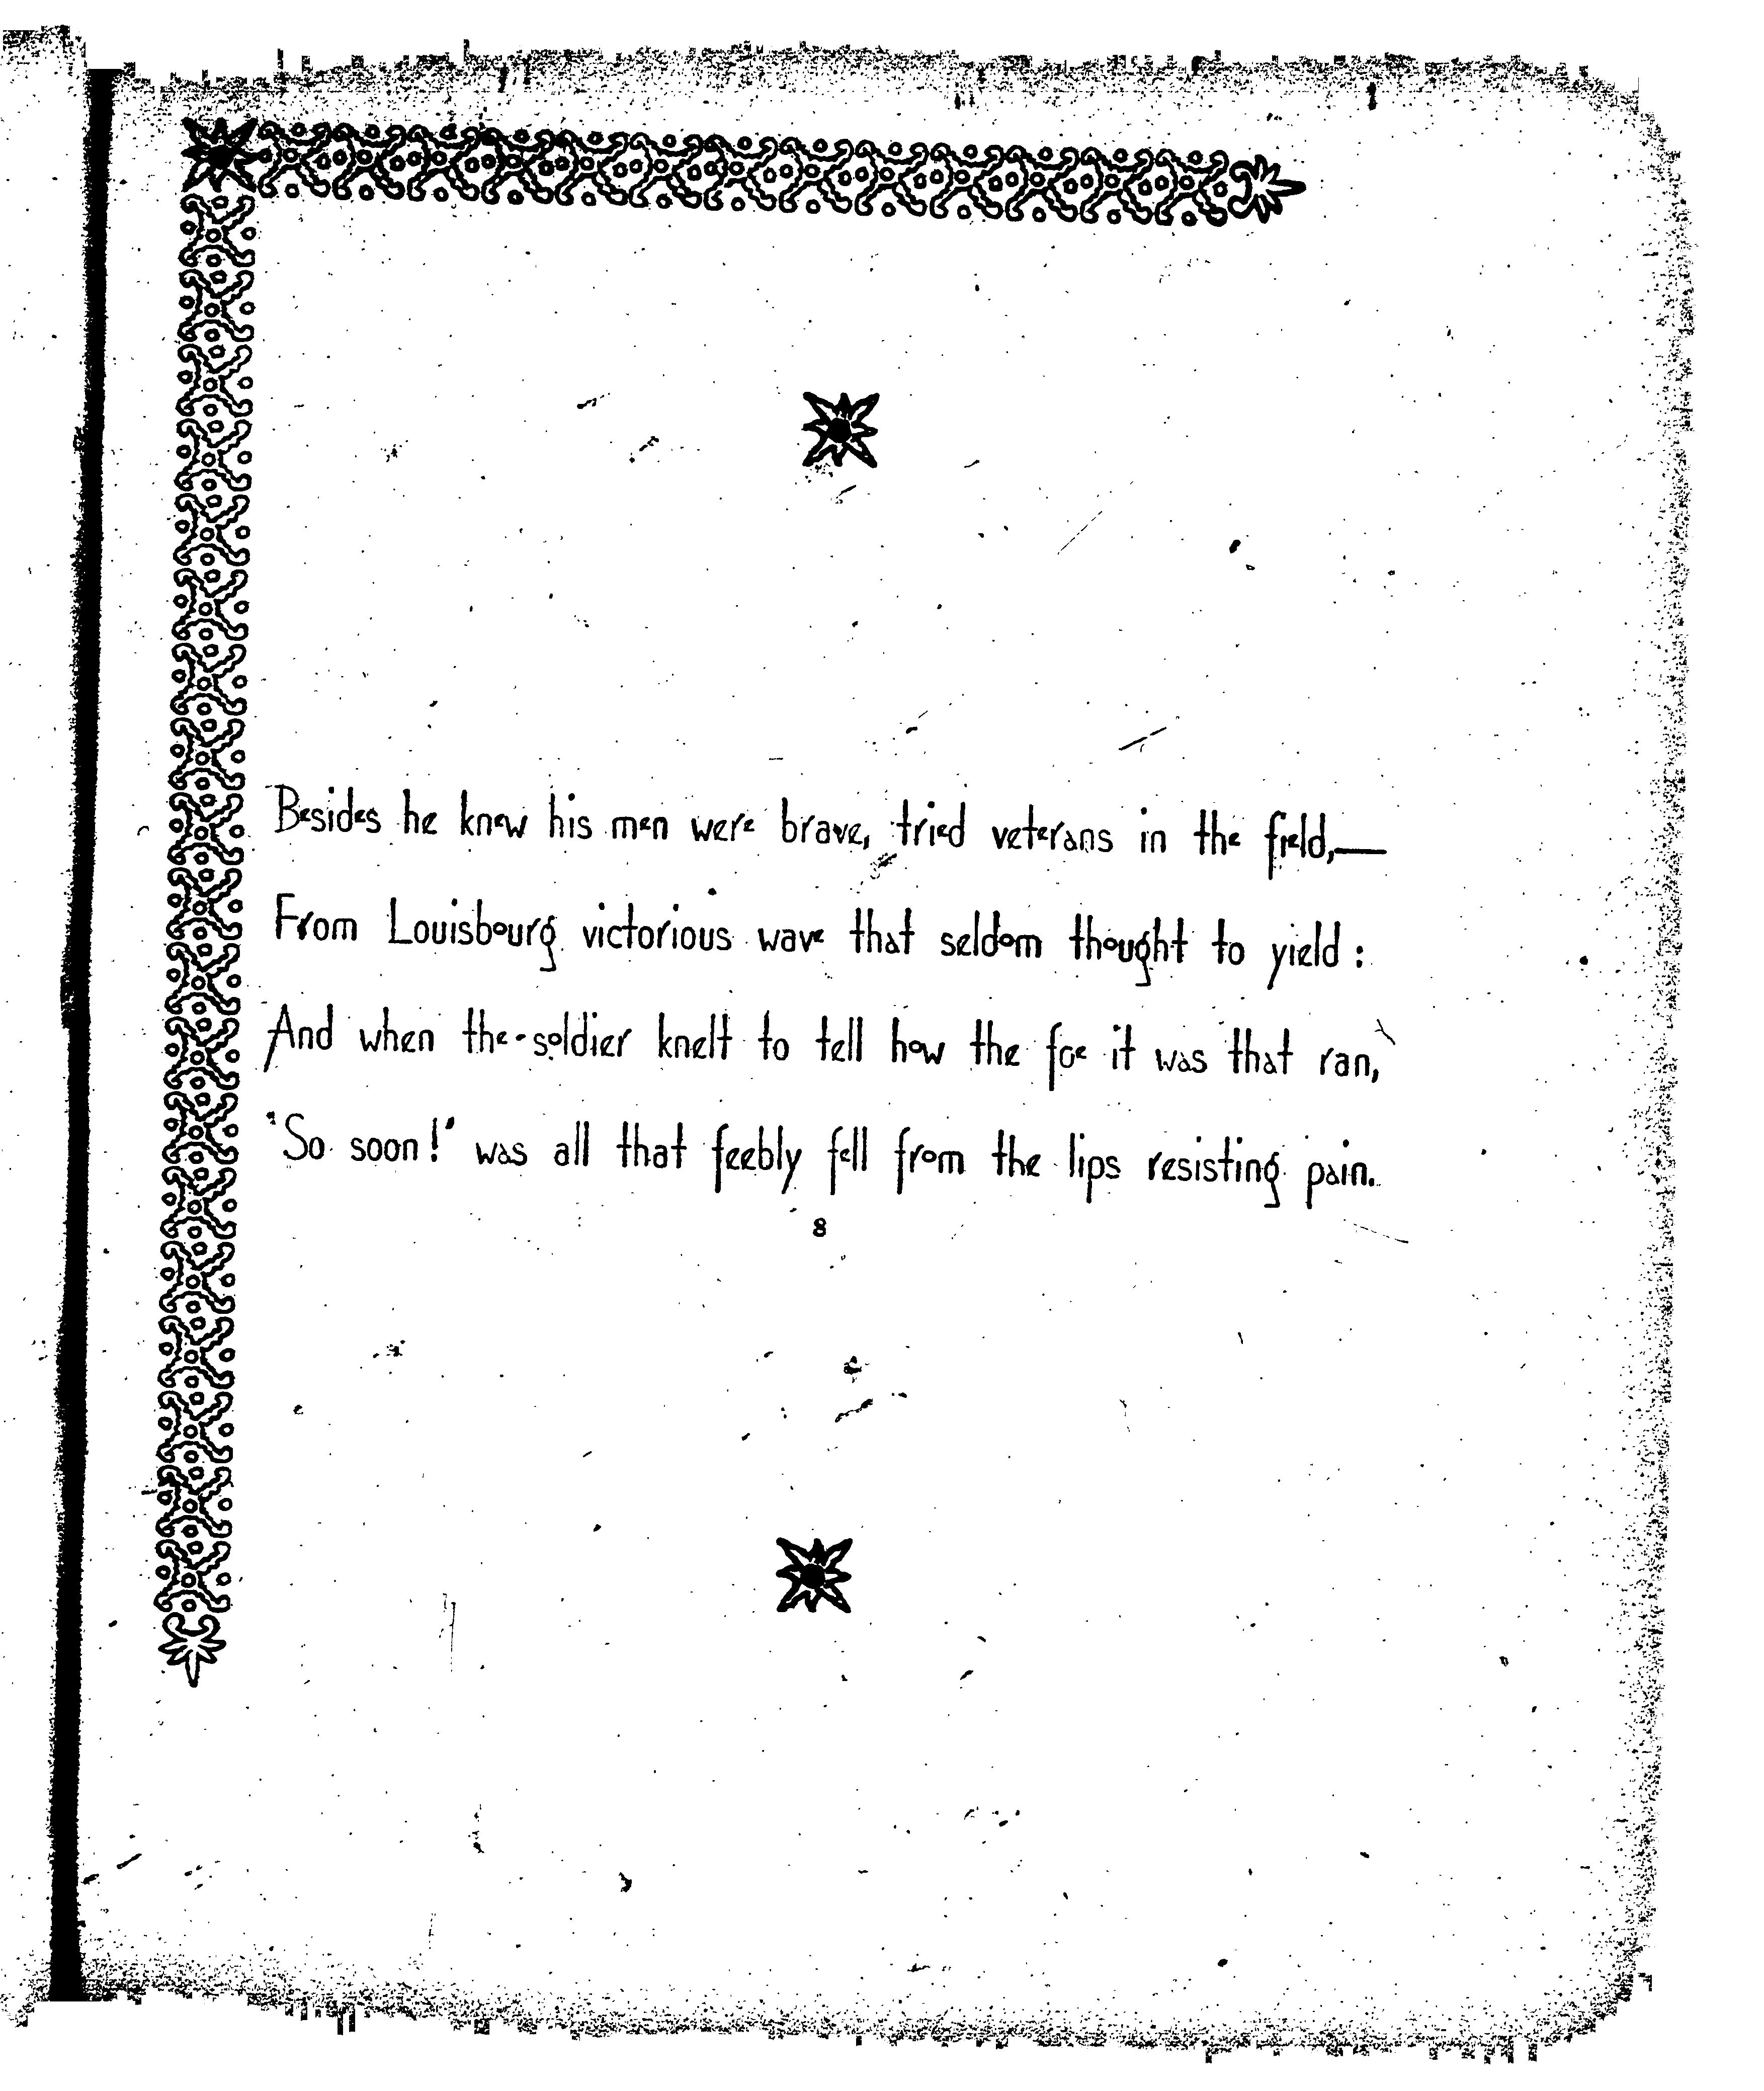 Besides he knew his men were brave, tried veterans in the field,—
From Louisbourg victorious wave that seldom thought to yield :
And when the soldier knelt to tell how the foe it was that ran,
"So soon!" was all that feebly fell from the lips resisting pain.
8